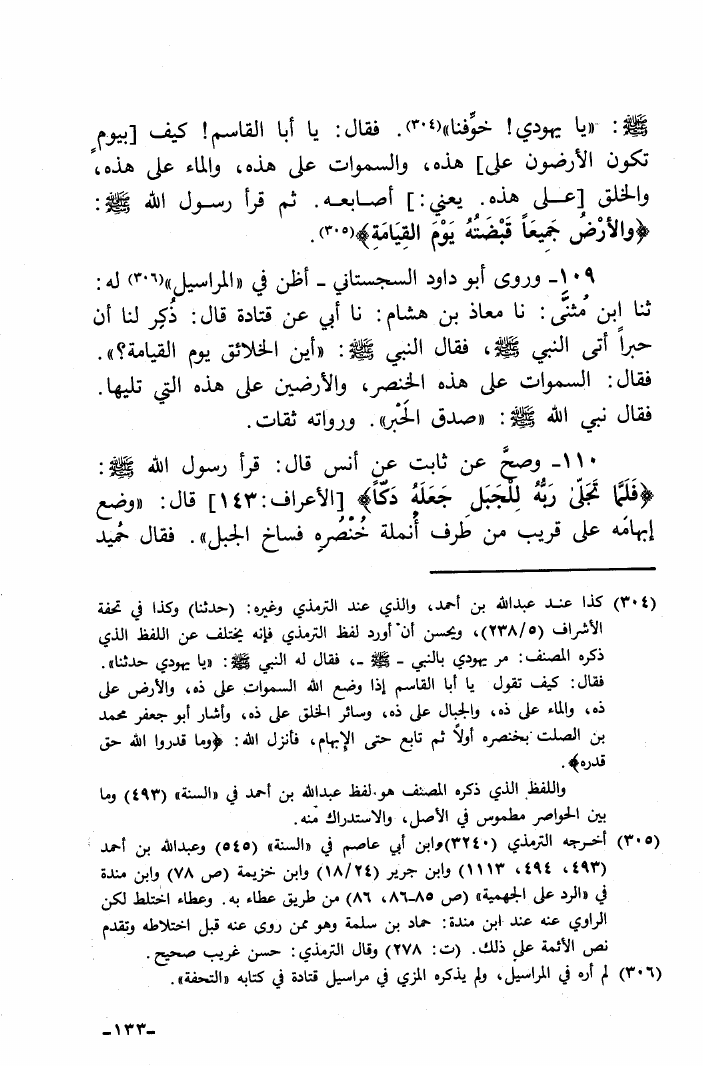 ﷺ: «يا يهودي! خوِّفنا»(٣٠٤). فقال: يا أبا القاسم! كيف [بيومٍ
تكون الأرضون على] هذه، والسموات على هذه، والماء على هذه،
والخلق [عـلى هذه. يعني:] أصـابعـه. ثم قرأ رسـول الله ﷺ:
﴿والأرْضُ جَمِيعَاً قَبْضَتُهُ يَوْمَ القِيَامَةِ﴾(٣٠٥).
١٠٩ـ وروى أبو داود السجستاني ـ أظن في «المراسيل»(٣٠٦) له:
ثنا ابن مُثنَّى: نا معاذ بن هشام: نا أبي عن قتادة قال: ذُكِر لنا أن
حبراً أتى النبي ﷺ، فقال النبي ﷺ: «أين الخلائق يوم القيامة؟».
فقال: السموات على هذه الخنصر، والأرضين على هذه التي تليها.
فقال نبي الله ﷺ: «صدق الحَبْر». ورواته ثقات.
١١٠ـ وصحَّ عن ثابت عن أنس قال: قرأ رسول الله ﷺ:
﴿فَلَمَّا تَجَلَّىٰ رَبُّهُ لِلْجَبَلِ جَعَلَهُ دَكّاً﴾ [الأعراف:١٤٣] قال: «وضع
إبهامَه على قريب من طَرف أُنملة خُنْصُرِهِ فساخ الجبل». فقال حُميد
(٣٠٤) كذا عنـد عبدالله بن أحمد، والذي عند الترمذي وغيره: (حدثنا) وكذا في تحفة
الأشراف (٢٣٨/٥)، ويحسن أن أورد لفظ الترمذي فإنه يختلف عن اللفظ الذي
ذكره المصنف: مر يهودي بالنبي ـ ﷺ ـ، فقال له النبي ﷺ: «يا يهودي حدثنا».
فقال: كيف تقول يا أبا القاسم إذا وضع الله السموات على ذه، والأرض على
ذه، والماء على ذه، والجبال على ذه، وسائر الخلق على ذه، وأشار أبو جعفر محمد
بن الصلت بخنصره أولاً ثم تابع حتى الإبهام، فأنزل الله: ﴿وما قدروا الله حق
قدره﴾.
واللفظ الذي ذكره المصنف هو لفظ عبدالله بن أحمد في «السنة» (٤٩٣) وما
بين الحواصر مطموس في الأصل، والاستدراك منه.
(٣٠٥) أخـرجه الترمذي (٣٢٤٠)وابن أبي عاصم في «السنة» (٥٤٥) وعبدالله بن أحمد
(٤٩٣، ٤٩٤، ١١١٣) وابن جرير (١٨/٢٤) وابن خزيمة (ص ٧٨) وابن مندة
في «الرد على الجهمية» (ص ٨٥ـ٨٦، ٨٦) من طريق عطاء به. وعطاء اختلط لكن
الراوي عنه عند ابن مندة: حماد بن سلمة وهو ممن روى عنه قبل اختلاطه وتقدم
نص الأئمة على ذلك. (ت: ٢٧٨) وقال الترمذي: حسن غريب صحيح.
(٣٠٦) لم أره في المراسيل، ولم يذكره المزي في مراسيل قتادة في كتابه «التحفة».
ـ١٣٣ـ